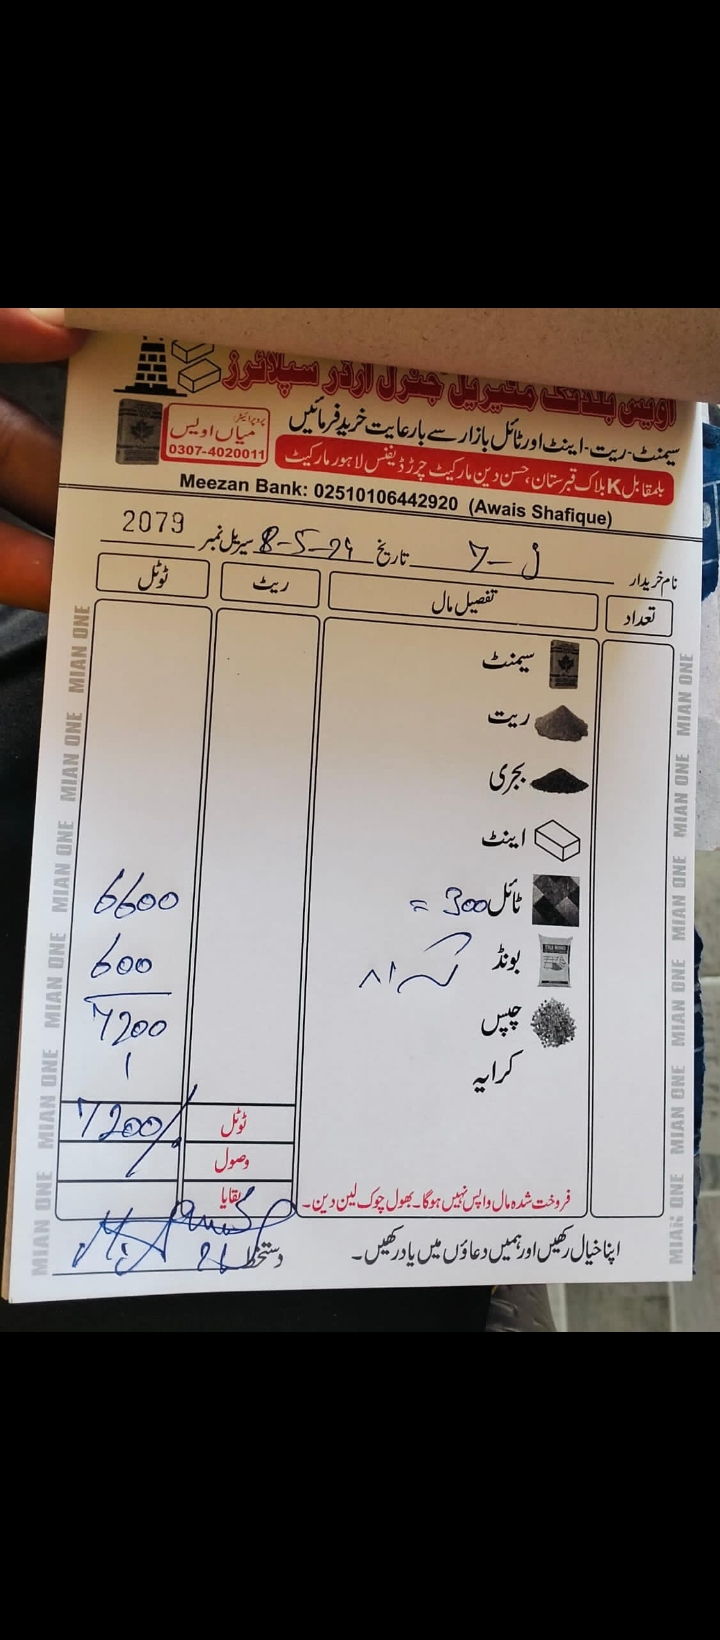 اویس بلڈنگ مٹیریل جنرل آرڈر سپلائرز
سیمنٹ-ریت-اینٹ اور ٹائل بازار سے بارعایت خرید فرمائیں
پروپرائیٹر:
میاں اویس
0307-4020011
بلمقابل K بلاک قبرستان، حسن دین مارکیٹ چرڑ ڈیفنس لاہور مارکیٹ
Meezan Bank: 02510106442920 (Awais Shafique)
نام خریدار
تاریخ 8-5-24 سیریل نمبر 2079
تعداد تفصیل مال ریٹ ٹوٹل
سیمنٹ
ریت
بجری
اینٹ
ٹائل 300 = 6600
بونڈ 600
چپس 7200
کرایہ
ٹوٹل 7200/
وصول
بقایا
فروخت شدہ مال واپس نہیں ہوگا۔ بھول چوک لین دین۔
دستخط
اپنا خیال رکھیں اور ہمیں دعاؤں میں یاد رکھیں۔
MIAN ONE MIAN ONE MIAN ONE MIAN ONE MIAN ONE MIAN ONE
MIAN ONE MIAN ONE MIAN ONE MIAN ONE MIAN ONE MIAN ONE